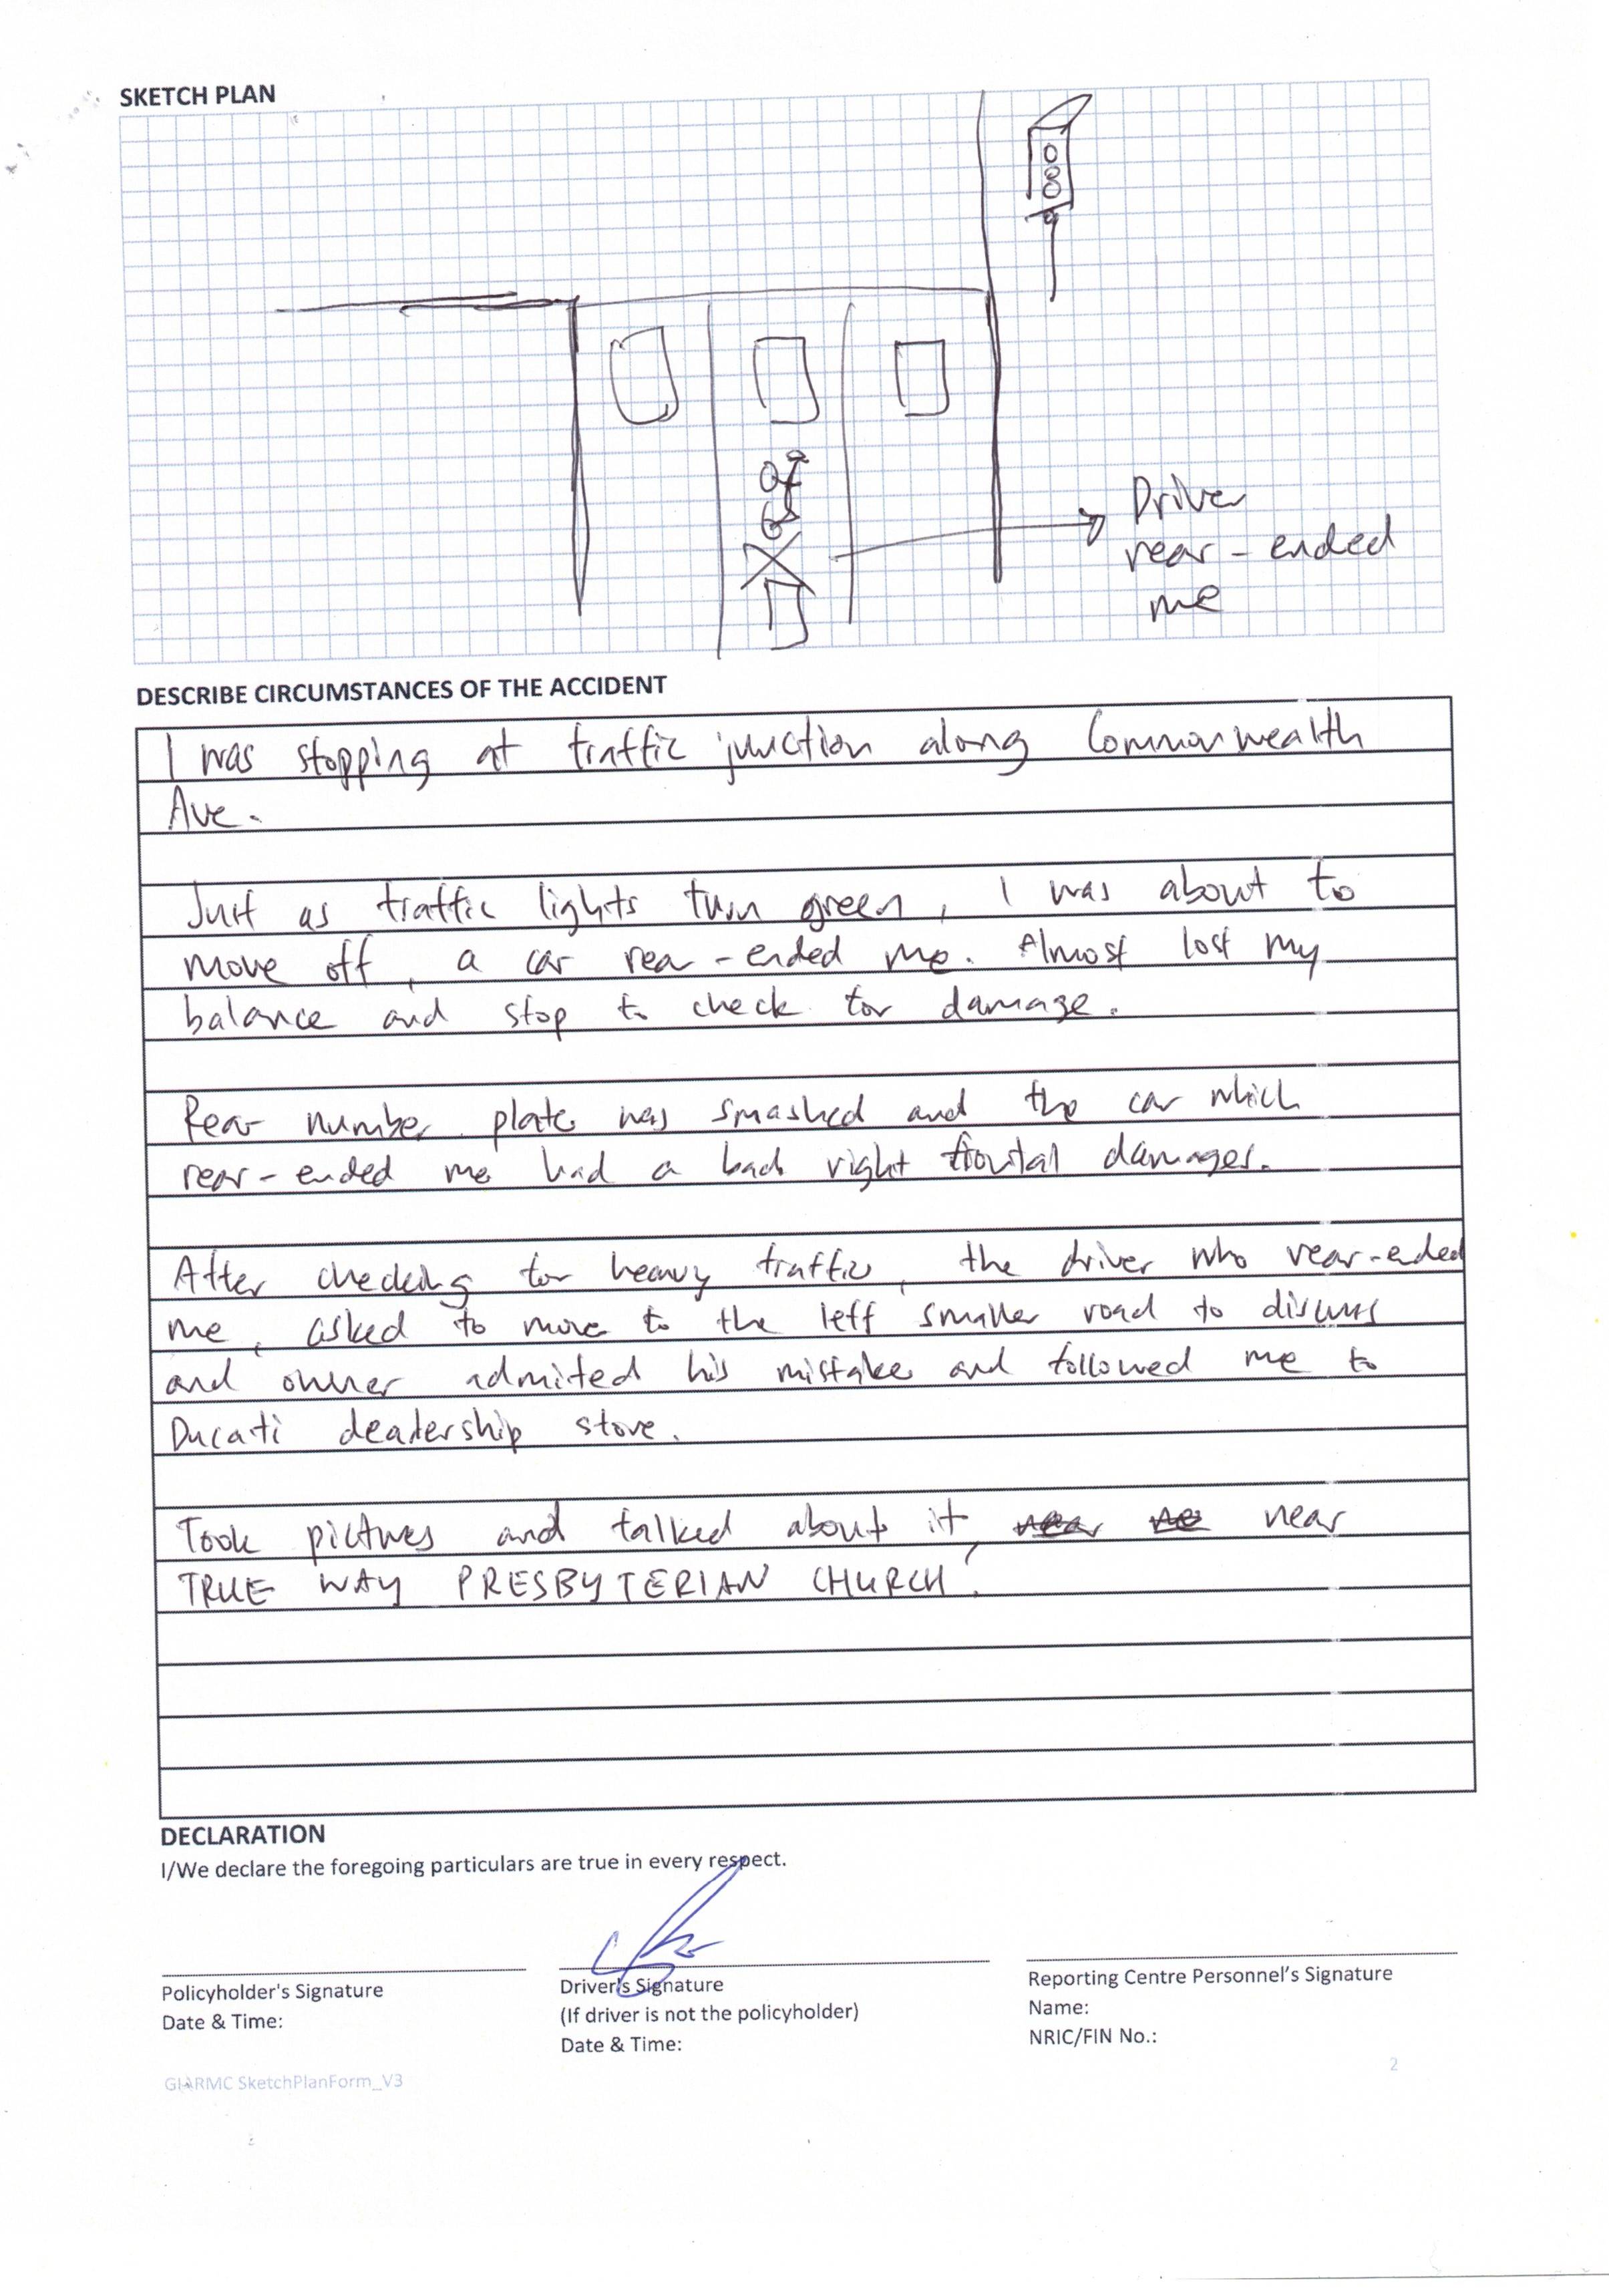 SKETCH PLAN
Driver
rear - ended
me
DESCRIBE CIRCUMSTANCES OF THE ACCIDENT
I was stopping at traffic junction along Commonwealth
Ave.
Just as traffic lights turn green, I was about to
move off, a car rear-ended me. Almost lost my
balance and stop to check for damage.
Rear number plate was smashed and the car which
rear-ended me had a bad right frontal damages.
After checking for heavy traffic, the driver who rear-ended
me, asked to move to the left smaller road to discuss
and owner admited his mistake and followed me to
Ducati dealership store.
Took pictures and talked about it, near
TRUE WAY PRESBYTERIAN CHURCH.
DECLARATION
I/We declare the foregoing particulars are true in every respect.
Policyholder's Signature
Date & Time:
Driver's Signature
(If driver is not the policyholder)
Date & Time:
Reporting Centre Personnel's Signature
Name:
NRIC/FIN No.:
GIARMC SketchPlanForm_V3
2